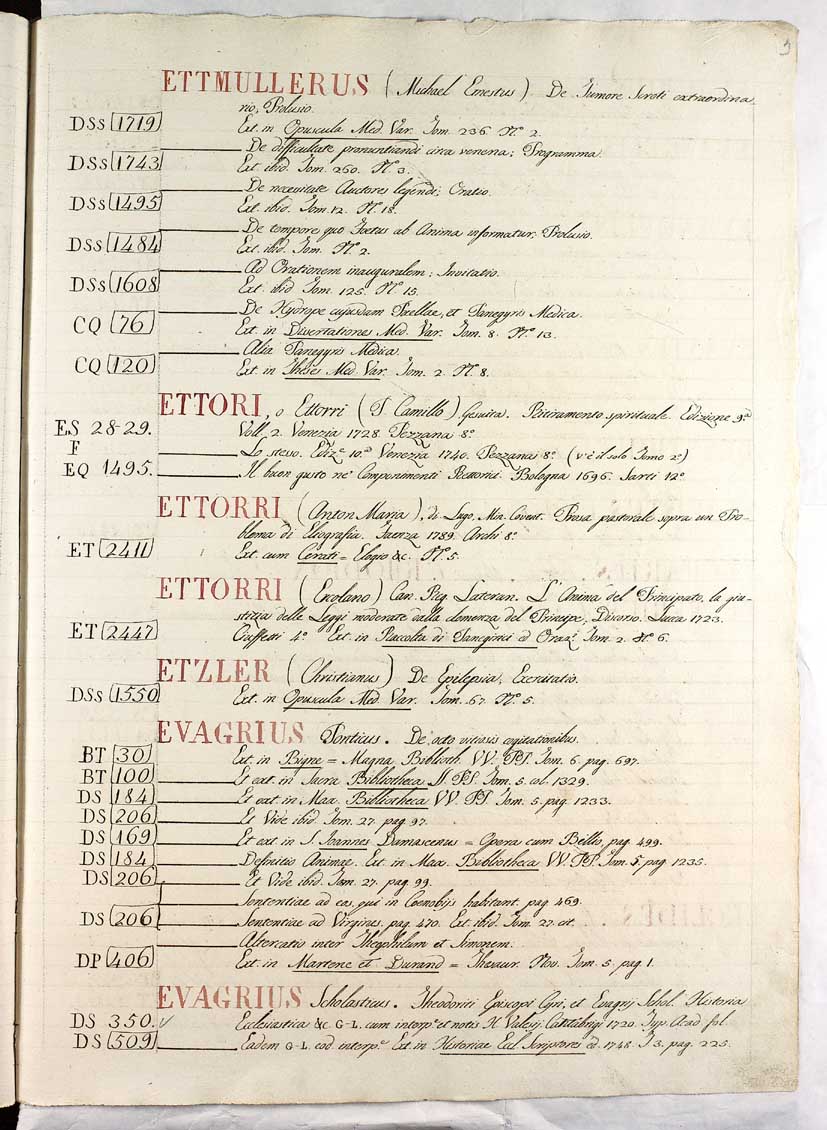 3
ETTMULLERUS (Michael Ernestus) De Tumore Scroti extraordina
rio, Prolusio.
DSs 1719 Ext. in Opuscula Med. Var. Tom. 236. N.º 2.
De difficultate pronuntiandi circa venena; Programma.
DSs 1743 Ext. ibid. Tom. 260. N.º 3.
De necessitate Auctores legendi; Oratio.
DSs 1495 Ext. ibid. Tom. 12. N.º 18.
De tempore quo Foetus ab Anima informatur, Prolusio.
DSs 1484 Ext. ibid. Tom. N.º 2.
Ad Orationem inauguralem; Invitatio.
DSs 1608 Ext. ibid Tom. 125. N.º 15.
De Hydrope cujusdam Puellae, et Panegyris Medica.
CQ 76 Ext. in Dissertationes Med. Var. Tom. 8. N.º 13.
Alia Panegyris Medica.
CQ 120 Ext. in Theses Med. Var. Tom. 2. N.º 8.
ETTORI, o Ettorri (P. Camillo) Gesuita. Ritiramento spirituale. Edizione 9.ª
ES 28-29. Voll. 2. Venezia 1728. Pezzana 8.º
F Lo stesso. Ediz.e 10.ª Venezia 1740. Pezzana 8.º (v'è il solo Tomo 2.º)
EQ 1495. Il buon gusto ne' Componimenti Rettorici. Bologna 1696. Sarti 12.º
ETTORRI (Anton Maria), di Lugo, Min. Covent. Prosa pastorale sopra un Pro-
blema di Etografia. Faenza 1789. Archi 8.º
ET 2411 Ext. cum Cerati = Elogio &c. N.º 5.
ETTORRI (Ercolano) Can. Reg. Lateran. L'Anima del Principato, la giu-
stizia delle Leggi moderate dalla clemenza del Principe, Discorso. Lucca 1723.
ET 2447 Ciuffetti 4.º Ext. in Raccolta di Panegirici ed Oraz.i Tom. 2. N.º 6.
ETZLER (Christianus) De Epilepsia, Exercitatio.
DSs 1550 Ext. in Opuscula Med. Var. Tom. 67. N.º 5.
EVAGRIUS Ponticus. De octo vitiosis cogitationibus.
BT 30 Ext. in Bigne = Magna Biblioth. VV. PP. Tom. 6. pag. 697.
BT 100 Et ext. in Sacra Bibliotheca SS. PP. Tom. 5. col. 1329.
DS 184 Et ext. in Max. Bibliotheca VV. PP. Tom. 5. pag. 1233.
DS 206 Et Vide ibid. Tom. 27. pag. 97.
DS 169 Et ext. in S. Joannes Damascenus = Opera cum Billio, pag. 499.
DS 184 Definitio Animae. Ext. in Max. Bibliotheca VV. PP. Tom. 5. pag. 1235.
DS 206 Et Vide ibid. Tom. 27. pag. 99.
Sententiae ad eos, qui in Coenobijs habitant. pag. 469.
DS 206 Sententiae ad Virgines, pag. 470. Ext. ibid. Tom. 27. cit.
Altercatio inter Theophilum et Simonem.
DP 406 Ext. in Martene et Durand = Thesaur. Nov. Tom. 5. pag. 1.
EVAGRIUS Scholasticus. Theodoriti Episcopi Cyri, et Evagrij Schol. Historia
DS 350. √ Ecclesiastica &c G-L. cum interp.e et notis H. Valesij. Cantabrigi 1720. Typ. Acad. fol.
DS 509 Eadem G-L. eod. interp.e Ext. in Historiae Eccl. Scriptores ed. 1748. T. 3. pag. 225.